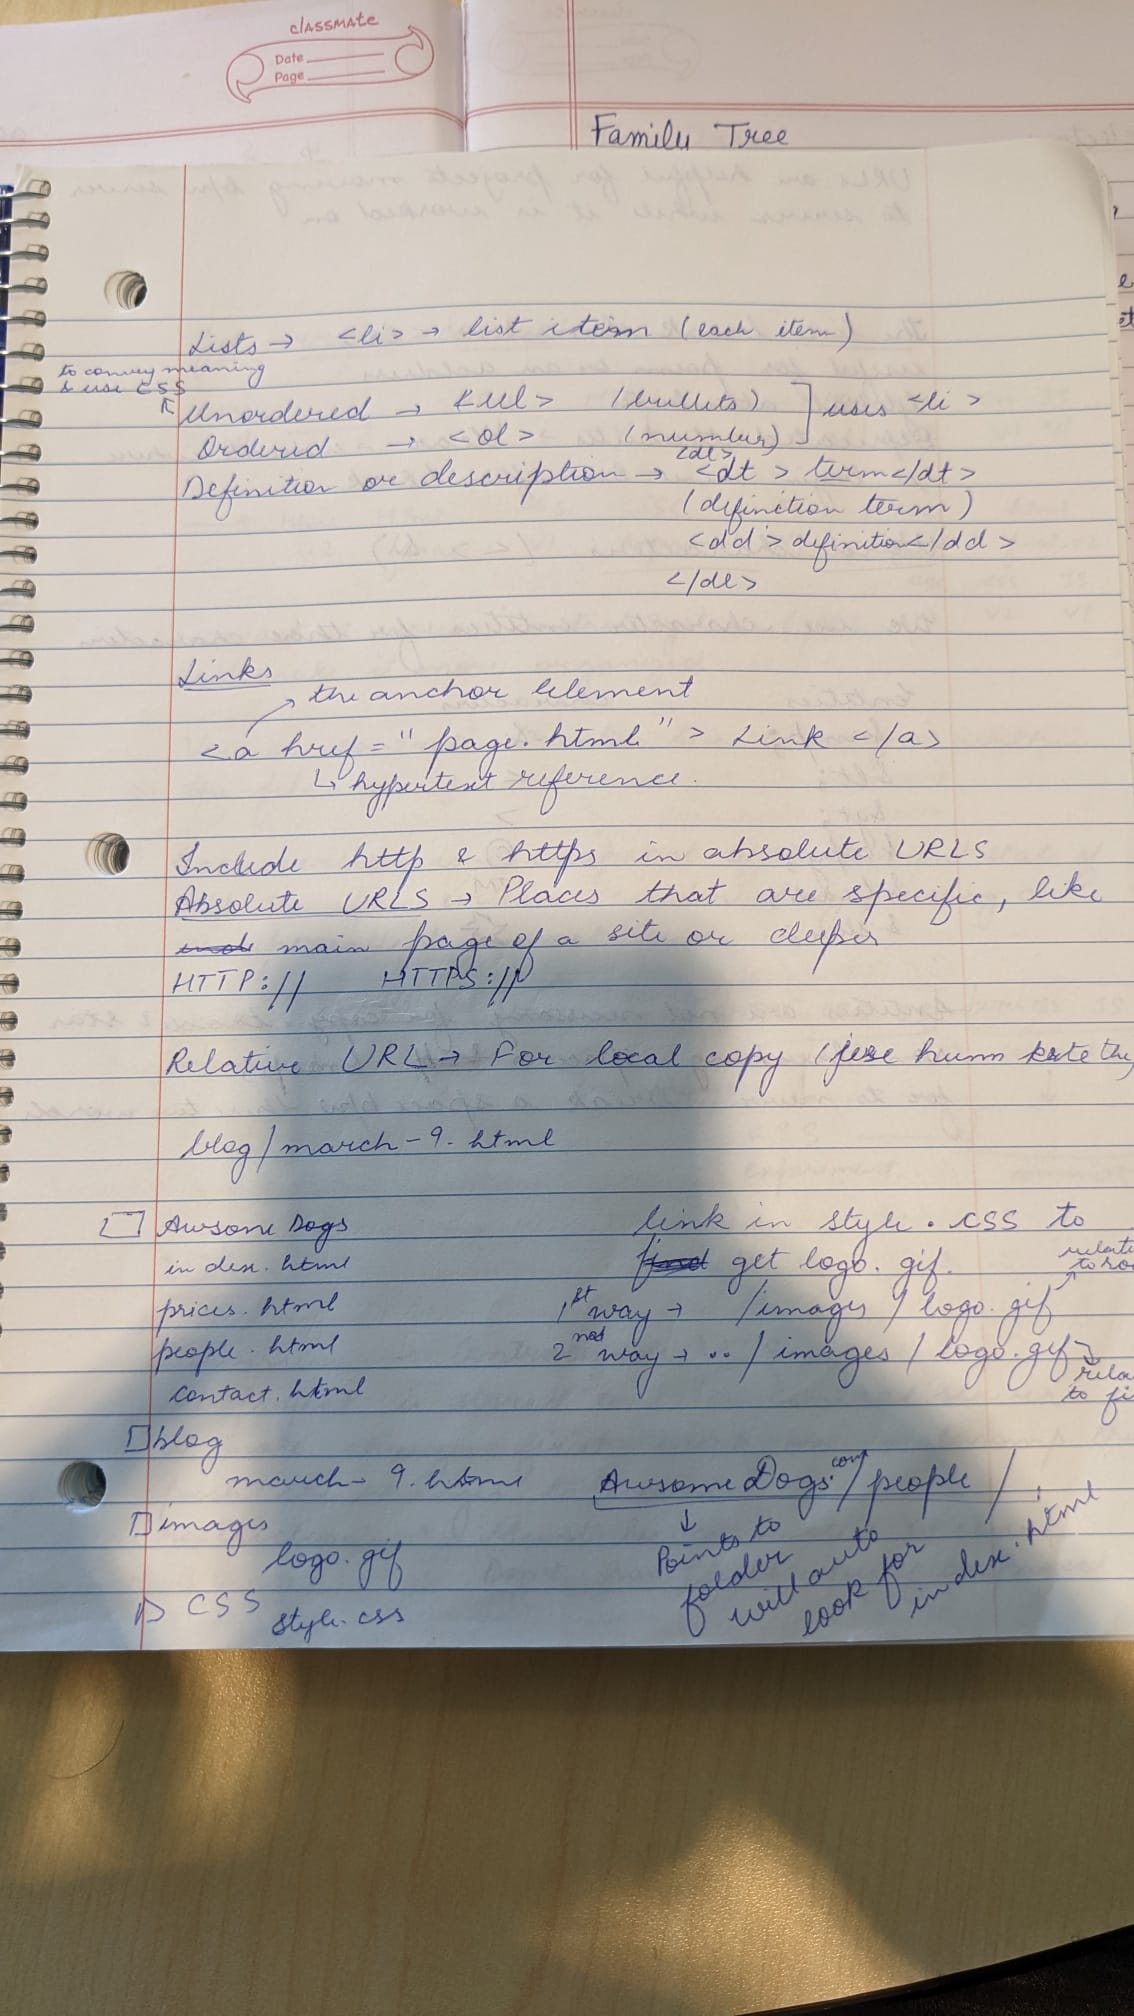 classmate
Date
Page
Family Tree
Lists → <li> → list item (each item)
to convey meaning
& use CSS
Unordered → <ul> (bullets) ] uses <li>
Ordered → <ol> (number)
Definition or description → <dl> <dt> term </dt>
(definition term)
<dd> definition </dd>
</dl>
Links
the anchor element
<a href = "page.html"> Link </a>
↳ hypertext reference.
Include http & https in absolute URLS
Absolute URLS → Places that are specific, like
main page of a site or deeper
HTTP:// HTTPS://
Relative URL → For local copy (
blog/march-9.html
Awsome Dogs
index.html
prices.html
people.html
contact.html
blog
march-9.html
images
logo.gif
CSS
style.css
link in style.css to
get logo.gif.
1st way → /images/logo.gif
2nd way → ../images/logo.gif
to fi
AwsomeDogs.com/people/
↓
Points to
folder
will auto
look for
index.html